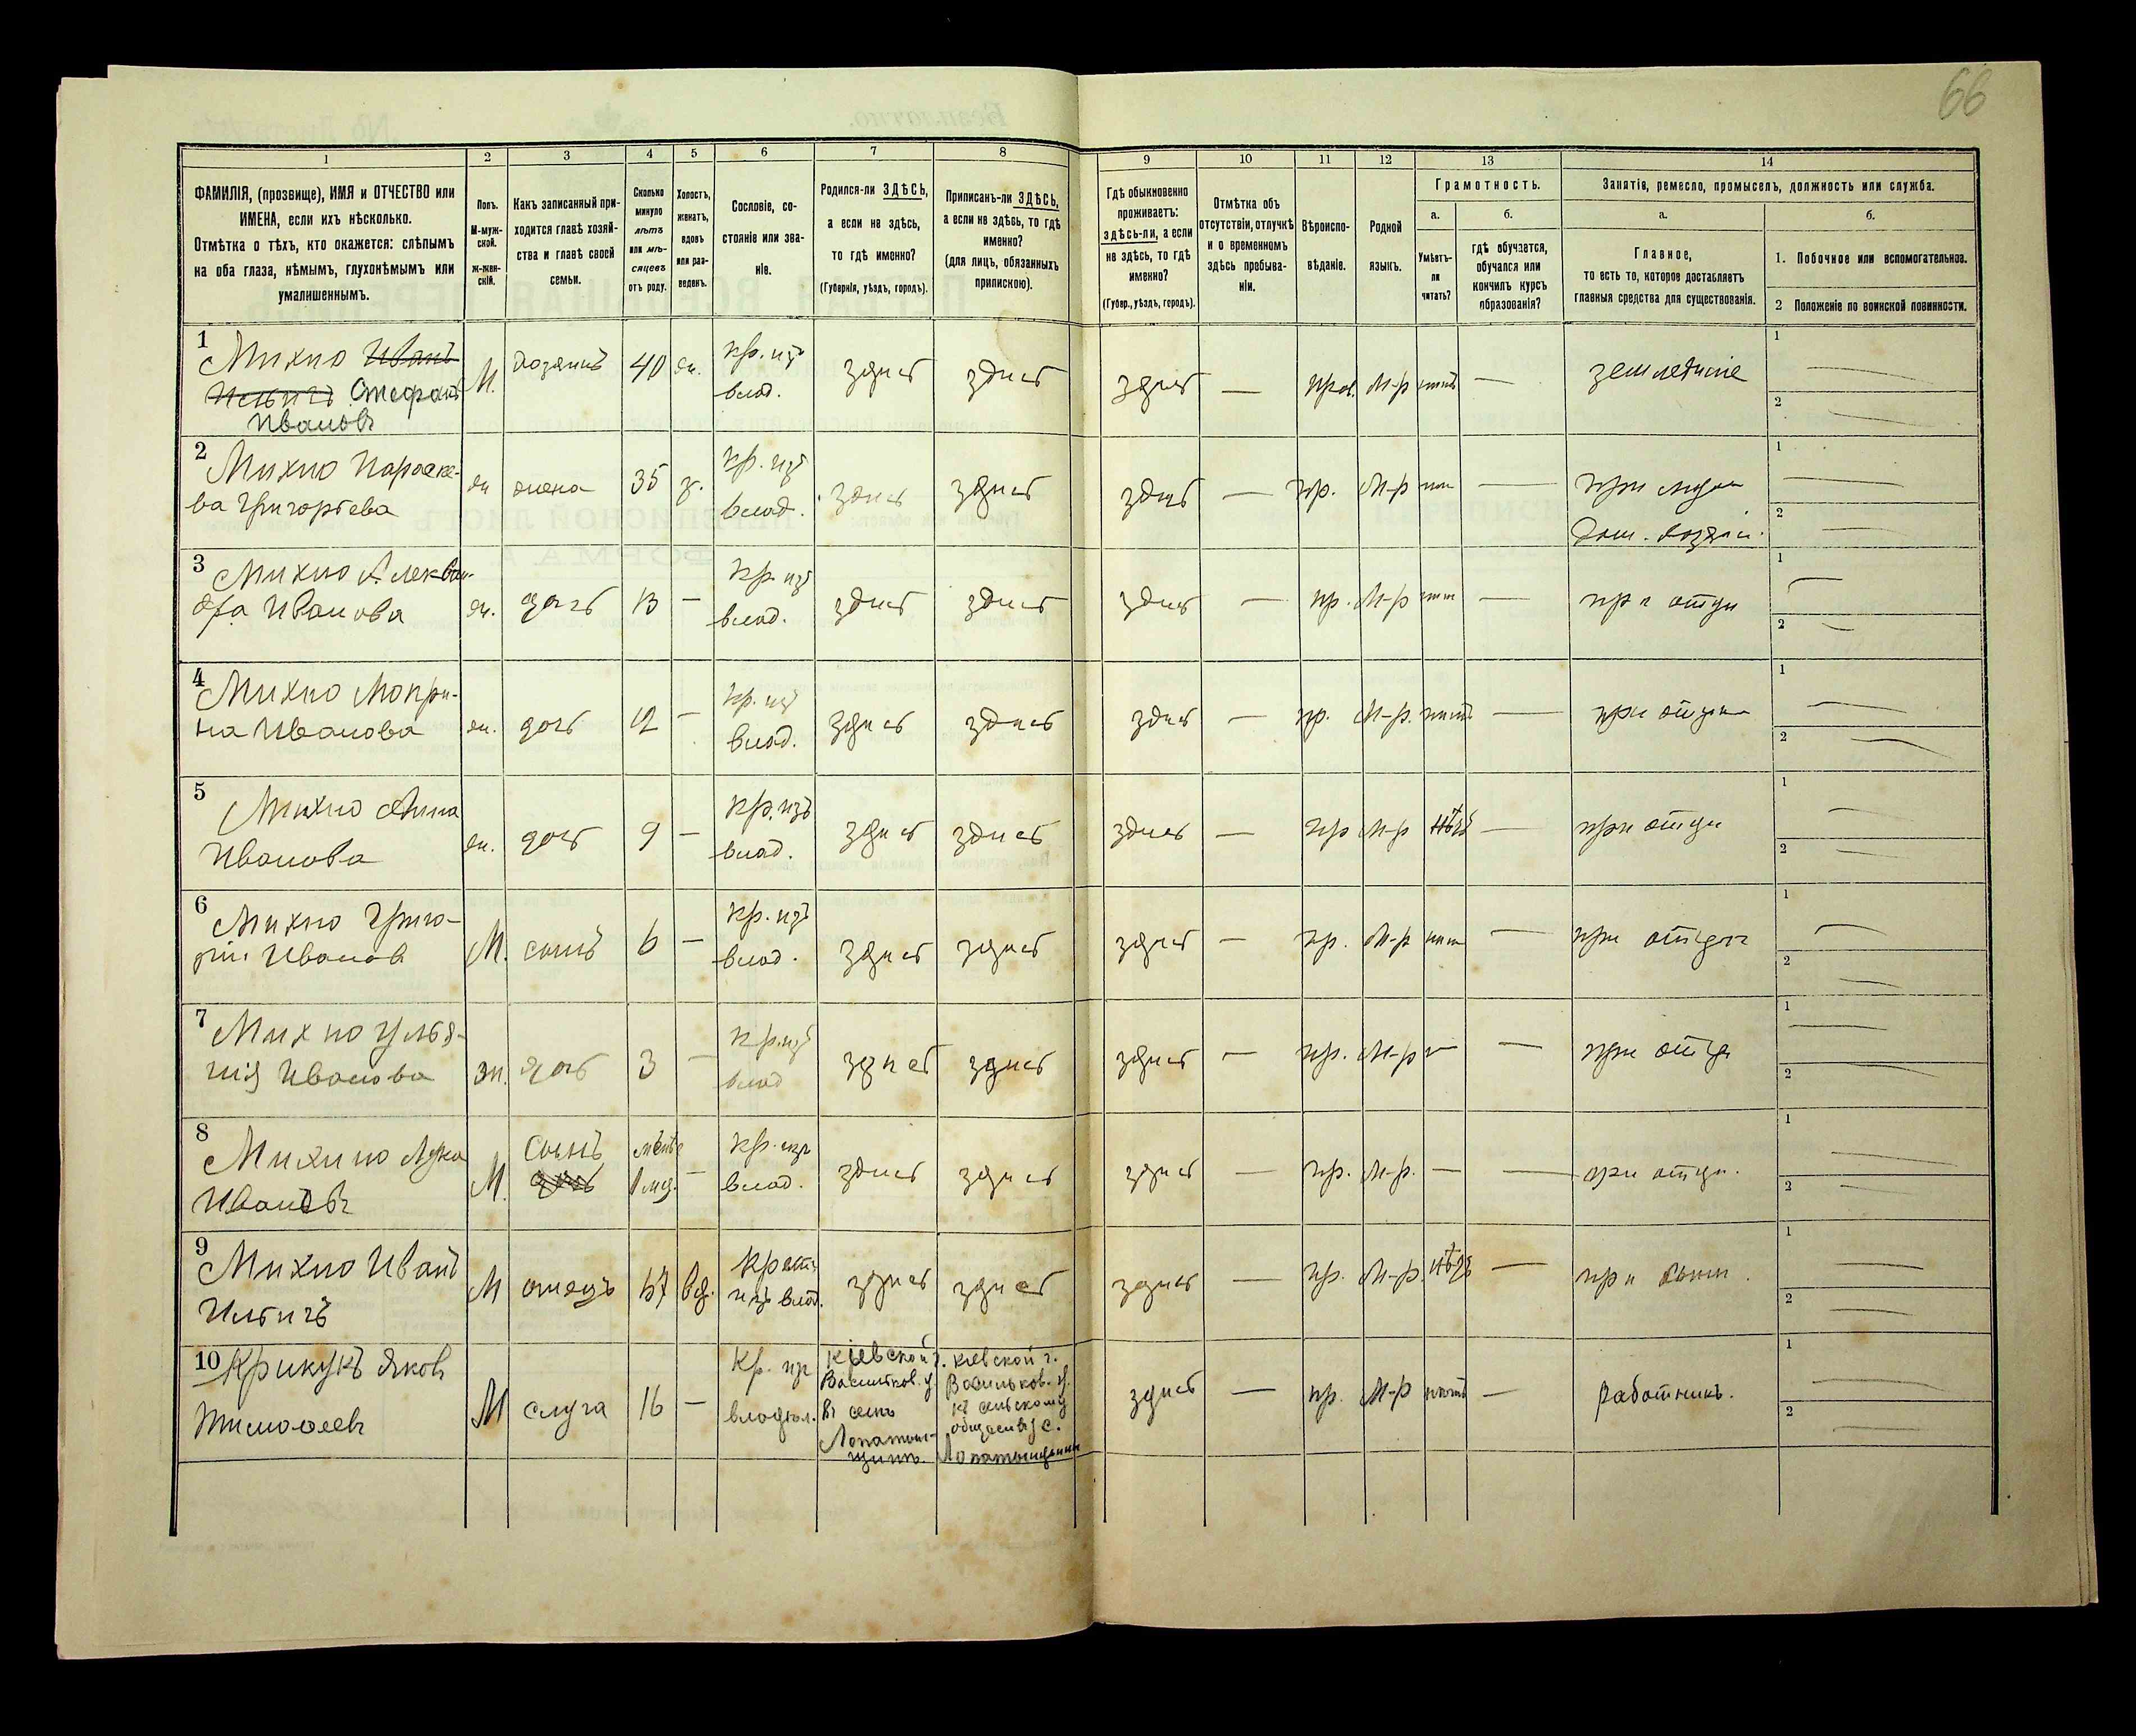 66
1 2 3 4 5 6 7 8 9 10 11 12 13 14
ФАМИЛІЯ, (прозвище), ИМЯ и ОТЧЕСТВО или
ИМЕНА, если ихъ нѣсколько.
Отмѣтка о тѣхъ, кто окажется: слѣпымъ
на оба глаза, нѣмымъ, глухонѣмымъ или
умалишеннымъ.
Полъ.
М-муж-
ской.
ж-жен-
скій.
Какъ записанный при-
ходится главѣ хозяй-
ства и главѣ своей
семьи.
Сколько
минуло
лѣтъ
или мѣ-
сяцевъ
отъ роду.
Холостъ,
женатъ,
вдовъ
или раз-
веденъ.
Сословіе, со-
стояніе или зва-
ніе.
Родился-ли ЗДѢСЬ,
а если не здѣсь,
то гдѣ именно?
(Губернія, уѣздъ, городъ).
Приписанъ-ли ЗДѢСЬ,
а если не здѣсь, то гдѣ
именно?
(для лицъ, обязанныхъ
припискою).
Гдѣ обыкновенно
проживаетъ:
здѣсь-ли, а если
не здѣсь, то гдѣ
именно?
(Губер., уѣздъ, городъ).
Отмѣтка объ
отсутствіи, отлучкѣ
и о временномъ
здѣсь пребыва-
ніи.
Вѣроиспо-
вѣданіе.
Родной
языкъ.
Грамотность.
а.
Умѣетъ-
ли
читать?
б.
гдѣ обучается,
обучался или
кончилъ курсъ
образованія?
Занятіе, ремесло, промыселъ, должность или служба.
а.
Главное,
то есть то, которое доставляетъ
главныя средства для существованія.
б.
1. Побочное или вспомогательное.
2 Положеніе по воинской повинности.
1 Михно Иванъ
Ильичъ Стефанъ
Ивановъ
М. хозяинъ 40 ж. кр. изъ
влад. здись здись здись — прав. М-р нитъ — земледиліе 1 — 2 —
2 Михно Параске-
ва Григорьева
ж жена 35 з. кр. изъ
влад. здись здись здись — пр. М-р нит — при мужи
дом. хозяй. 1 — 2 —
3 Михно Алексан-
дра Иванова
ж. дочь 13 — кр. изъ
влад. здись здись здись — пр. М-р нит — при отци 1 — 2 —
4 Михно Макри-
на Иванова
ж. дочь 12 — кр. изъ
влад. здись здись здись — пр. М-р. нитъ — при отци 1 — 2 —
5 Михно Анна
Иванова
ж. дочь 9 — кр. изъ
влад. здись здись здись — пр М-р нѣтъ — при отци 1 — 2 —
6 Михно Григо-
рій Иванов
М. сынъ 6 — кр. изъ
влад. здись здись здись — пр. М-р нит — при отци 1 — 2 —
7 Михно Улья-
нія Иванова
ж. дочь 3 — кр. изъ
влад здись здись здись — пр. М-р — при отци 1 — 2 —
8 Михно Лука
Ивановъ
М. сынъ
дочь
1 мѣс. — кр. изъ
влад. здись здись здись — пр. М-р. — — при отци. 1 — 2 —
9 Михно Иванъ
Ильичъ
М отецъ 67 вд. Крест.
изъ влад. здись здись здись — пр. М-р. нѣтъ — при сыни. 1 — 2 —
10 Крикукъ Яковъ
Тимофеевъ
М слуга 16 — Кр. изъ
владѣл.
Кіевской г.
Васильков. у.
въ сели
Лопатин-
щини.
Кіевской г.
Васильков. у.
къ сельскому
обществу с.
Лопатинщини
здись — пр. М-р нитъ — работникъ. 1 — 2 —